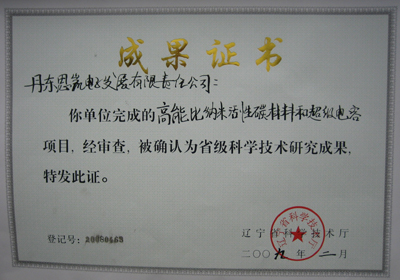 成果证书
丹东思凯电子发展有限责任公司:
你单位完成的高能比纳米活性碳材料和超级电容
项目,经审查,被确认为省级科学技术研究成果,
特发此证。
辽宁省科学技术厅
登记号:20080463
二〇〇九年二月